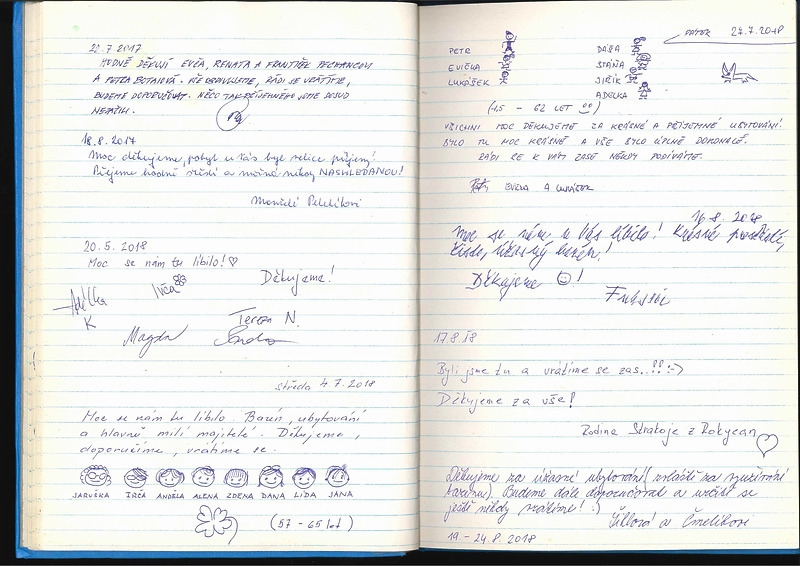 22.7.2017
HODNĚ DĚKUJÍ EVČA, RENATA A FRANTIŠEK
A PETRA
BUDEME DOPORUČOVAT. NĚCO TAK PŘÍJEMNÉHO JSME DOSUD
NEZAŽILI.
18.8.2017
Moc děkujeme, pobyt u Vás byl velice příjemný!
Přejeme hodně štěstí a možná někdy NASHLEDANOU!
Manželé
20.5.2018
Moc se nám tu líbilo! ♡
Děkujeme!
Adélka
K
Ivča
Tereza N.
Magda
středa 4.7.2018
Moc se nám tu líbilo. Bazén, ubytování
a hlavně milí majitelé. Děkujeme,
doporučíme, vrátíme se.
JARUŠKA IRČA ANDĚLA ALENA ZDENA DANA LÍDA JANA
(57 - 65 let)
PÁTEK 27.7.2018
PETR DÁŠA
EVIČKA STÁŇA
LUKÁŠEK JIŘÍK
ADÉLKA
(1,5 - 62 LET)
VŠICHNI MOC DĚKUJEME ZA KRÁSNÉ A PŘÍJEMNÉ UBYTOVÁNÍ.
BYLO TU MOC KRÁSNĚ A VŠE BYLO ÚPLNĚ DOKONALÉ.
RÁDI SE K VÁM ZASE NĚKDY PODÍVÁME.
Petr EVIČKA A LUKÁŠEK
16.8. 2018
Moc se nám u Vás líbilo! Krásné prostředí,
čisto, úžasný bazén!
Děkujeme ☺!
17.8.18
Byli jsme tu a vrátíme se zas..!!:-)
Děkujeme za vše!
Rodina Strakoje z Rokycan
Děkujeme za úžasné ubytování (zvláště za využívání
bazénu). Budeme dále doporučovat a určitě se
ještě někdy vrátíme! :)
19.-24.8.2018